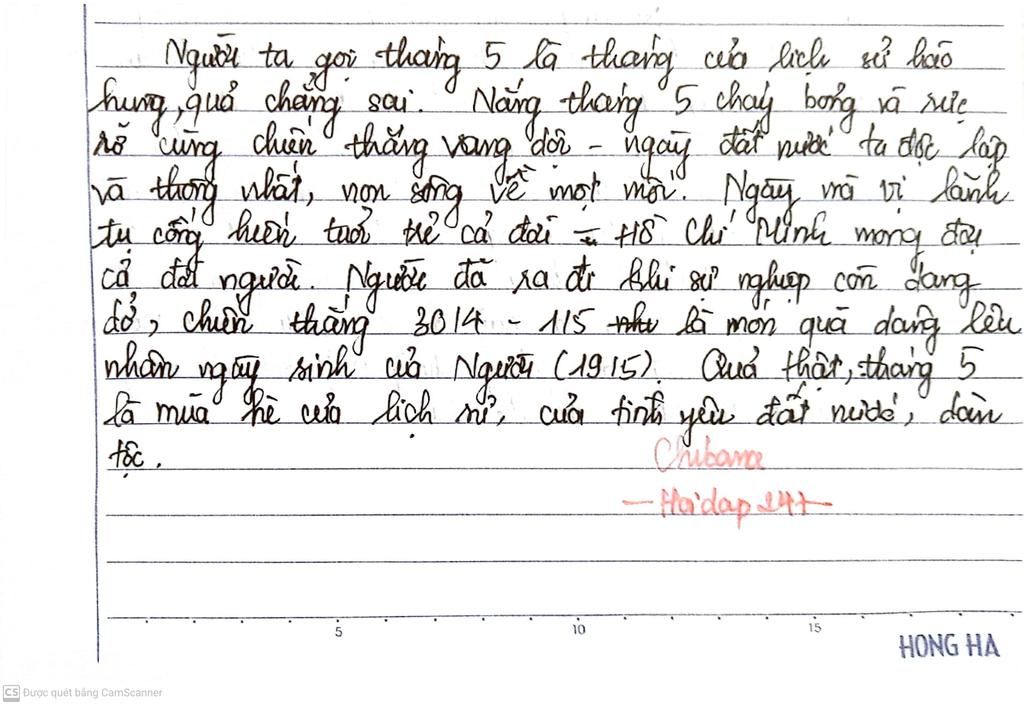 Người ta gọi tháng 5 là tháng của lịch sử hào
hùng, quả chẳng sai. Nắng tháng 5 cháy bỏng và rực
rỡ cùng chiến thắng vang dội - ngày đất nước ta độc lập
và thống nhất, non sông về một mối. Ngày mà vị lãnh
tụ cống hiến tuổi trẻ cả đời - Hồ Chí Minh mong đợi
cả đời người. Người đã ra đi khi sự nghiệp còn dang
dở, chiến thắng 30/4 - 1/5 là món quà dâng lên
nhân ngày sinh của Người (19/5). Quả thật, tháng 5
là mùa hè của lịch sử, của tình yêu đất nước, dân
tộc.
Chibana
- Hoidap247 -
5 10 15
HONG HA
CS Được quét bằng CamScanner